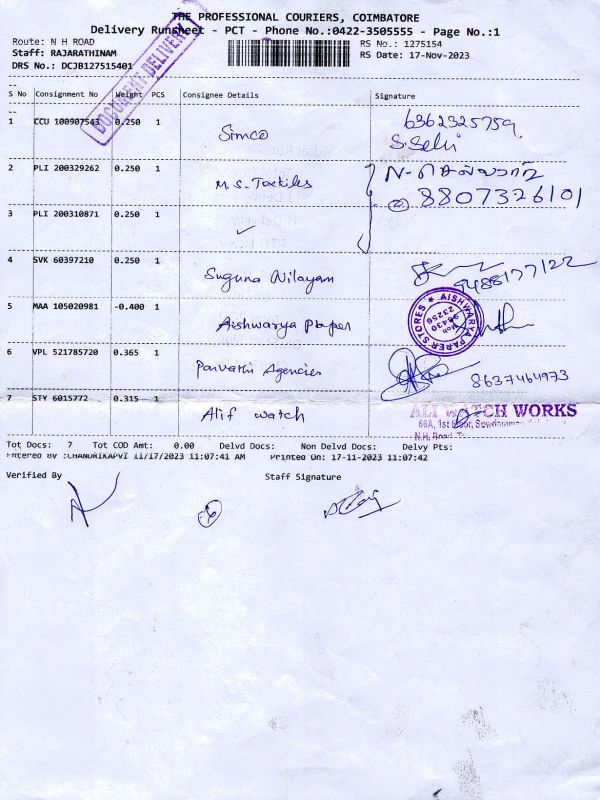 THE PROFESSIONAL COURIERS, COIMBATORE
Delivery Runsheet - PCT - Phone No.:0422-3505555 - Page No.:1
Route: N H ROAD
RS No.: 1275154
Staff: RAJARATHINAM
RS Date: 17-Nov-2023
DRS No.: DCJB127515401
DOCUMENT DELIVERY
S No Consignment No Weight PCS Consignee Details Signature
1 CCU 100907543 0.250 1 Simco 6362325759
S. Selvi
2 PLI 200329262 0.250 1 M.S. Textiles
8807326101
3 PLI 200310871 0.250 1 ✓
4 SVK 60397210 0.250 1 Suguna Nilayam 9488177122
5 MAA 105020981 -0.400 1 Aishwarya Paper
AISHWARYA PAPER STORES
98430
23256
6 VPL 521785720 0.365 1 Parvathi Agencies 8637464973
7 STY 6015772 0.315 1 Alif watch
ALI WATCH WORKS
66A, 1st Floor,
N.H. Road,
Tot Docs: 7 Tot COD Amt: 0.00 Delvd Docs: Non Delvd Docs: Delvy Pts:
Entered By :CHANDRIKAPVI 11/17/2023 11:07:41 AM Printed On: 17-11-2023 11:07:42
Verified By Staff Signature
6